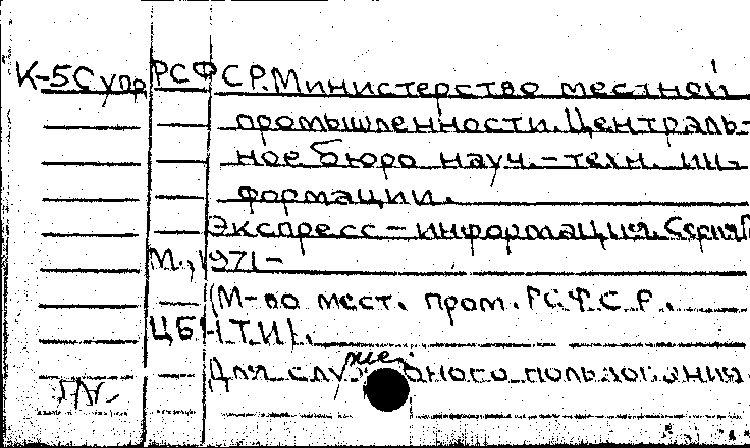 К-5Супр РСФСР. Министерство местной
промышленности. Централь-
ное бюро науч.-техн. ин-
формации.
Экспресс-информация. Серия
М., 1971-
(М-во мест. пром. РСФСР.
ЦБНТИ).
Для служебного пользования